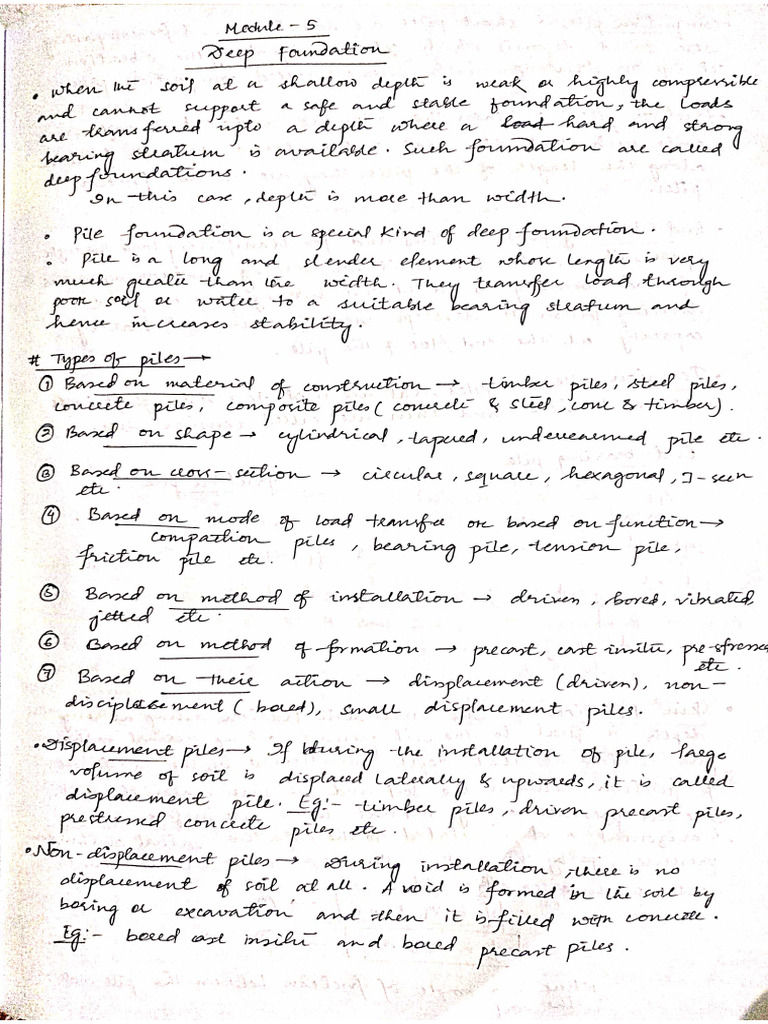 Module - 5
Deep Foundation
• When the soil at a shallow depth is weak or highly compressible
and cannot support a safe and stable foundation, the loads
are transferred upto a depth where a load hard and strong
bearing stratum is available. Such foundation are called
deep foundations.
In this case, depth is more than width.
• Pile foundation is a special kind of deep foundation.
• Pile is a long and slender element whose length is very
much greater than the width. They transfer load through
poor soil or water to a suitable bearing stratum and
hence increases stability.
# Types of piles →
① Based on material of construction → timber piles, steel piles,
concrete piles, composite piles (concrete & steel, conc & timber).
② Based on shape → cylindrical, tapered, underreamed pile etc.
③ Based on cross-section → circular, square, hexagonal, I-secn
etc.
④ Based on mode of load transfer or based on function →
compaction piles, bearing pile, tension pile,
friction pile etc.
⑤ Based on method of installation → driven, bored, vibrated,
jetted etc.
⑥ Based on method of formation → precast, cast insitu, pre-stressed
etc.
⑦ Based on their action → displacement (driven), non-
displacement (bored), small displacement piles.
• Displacement piles → If during the installation of pile, large
volume of soil is displaced laterally & upwards, it is called
displacement pile. Eg:- timber piles, driven precast piles,
prestressed concrete piles etc.
• Non-displacement piles → During installation, there is no
displacement of soil at all. A void is formed in the soil by
boring or excavation and then it is filled with concrete.
Eg:- bored cast insitu and bored precast piles.